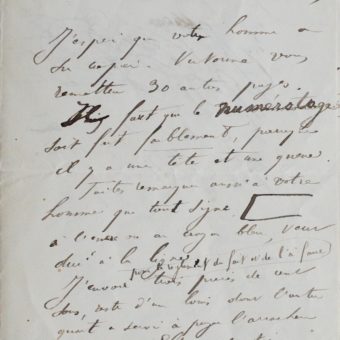 J'espère que votre homme a
du papier. Victorine vous
remettra 30 autres pages.
Il faut que le numérotage
soit fait doublement puisqu'
il y a une tête et une queue.
Faites remarquer aussi à votre
homme que tout signe
à l'encre ou au crayon bleu, veut
dire à la ligne
J'envoie trois pièces de cent
sous, reste d'un louis dont l'autre
quart a servi à payer